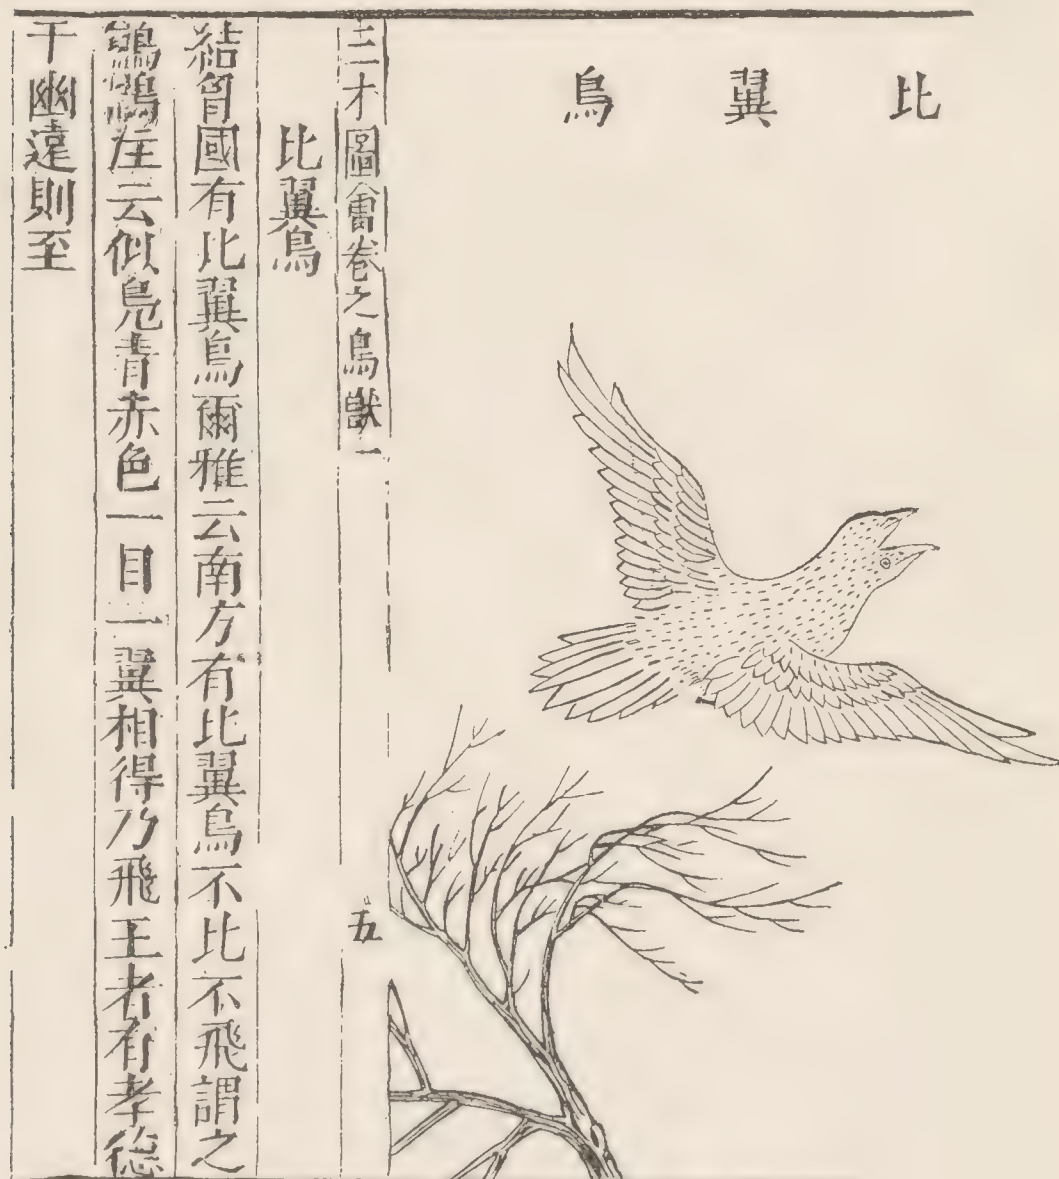 比翼鳥
三才圖會卷之鳥獸一
五
比翼鳥
結胷國有比翼鳥爾雅云南方有比翼鳥不比不飛謂之
鶼鶼注云似鳬青赤色一目一翼相得乃飛王者有孝徳
于幽遠則至